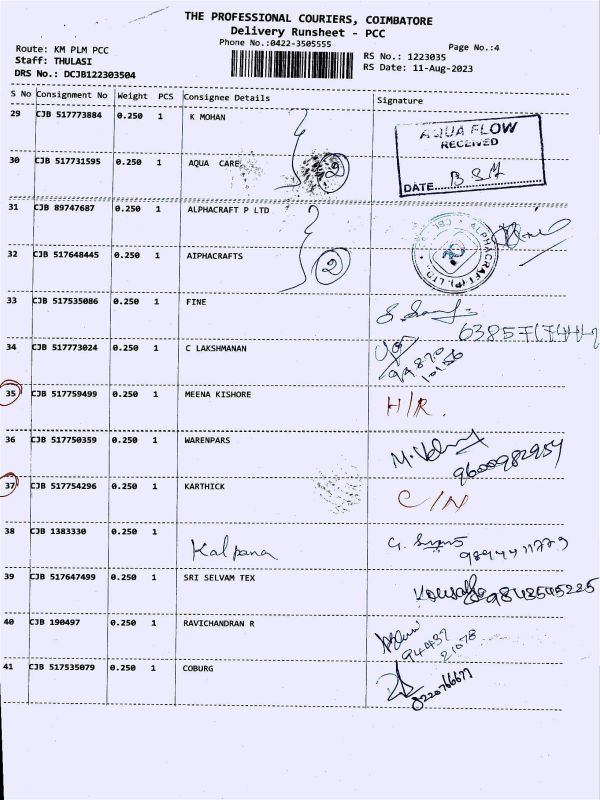 THE PROFESSIONAL COURIERS, COIMBATORE
Delivery Runsheet - PCC
Phone No.:0422-3505555
Page No.:4
Route: KM PLM PCC
Staff: THULASI
DRS No.: DCJB122303504
RS No.: 1223035
RS Date: 11-Aug-2023
S No Consignment No Weight PCS Consignee Details Signature
29 CJB 517773884 0.250 1 K MOHAN
AQUA FLOW
RECEIVED
DATE
30 CJB 517731595 0.250 1 AQUA CARE 2
31 CJB 89747687 0.250 1 ALPHACRAFT P LTD
ALPHACRAFT (P) LTD.
32 CJB 517648445 0.250 1 AIPHACRAFTS 2
33 CJB 517535086 0.250 1 FINE
34 CJB 517773024 0.250 1 C LAKSHMANAN
35 CJB 517759499 0.250 1 MEENA KISHORE H/R.
36 CJB 517750359 0.250 1 WARENPARS 9600982954
37 CJB 517754296 0.250 1 KARTHICK C/N
38 CJB 1383330 0.250 1 Kalpana
39 CJB 517647499 0.250 1 SRI SELVAM TEX 9843545225
40 CJB 190497 0.250 1 RAVICHANDRAN R
94437
21078
41 CJB 517535079 0.250 1 COBURG
8220766677